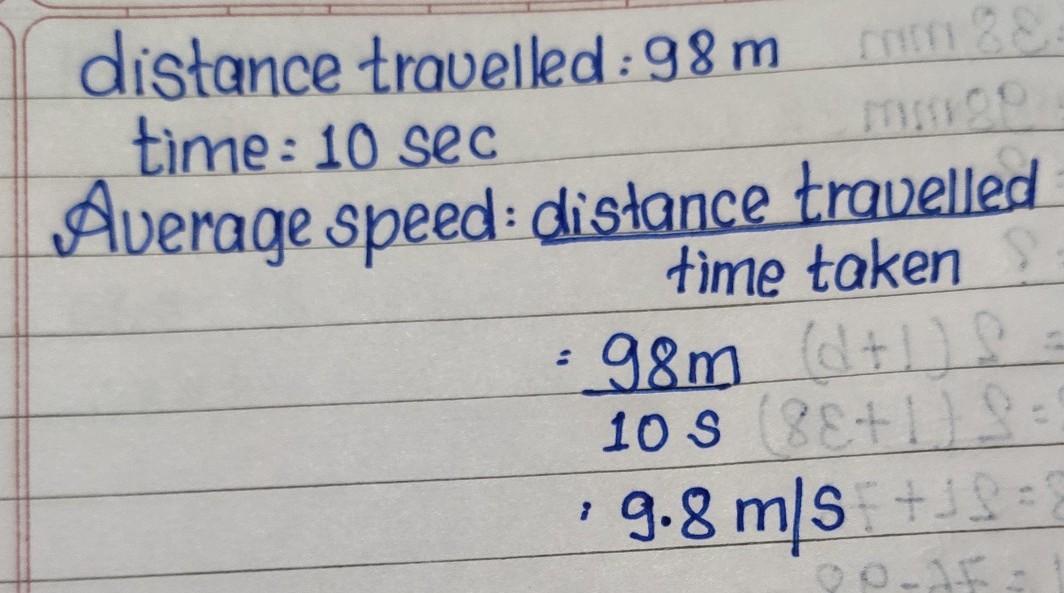 distance travelled : 98 m
time = 10 sec
Average speed : distance travelled
time taken
= 98m
10 s
: 9.8 m/s